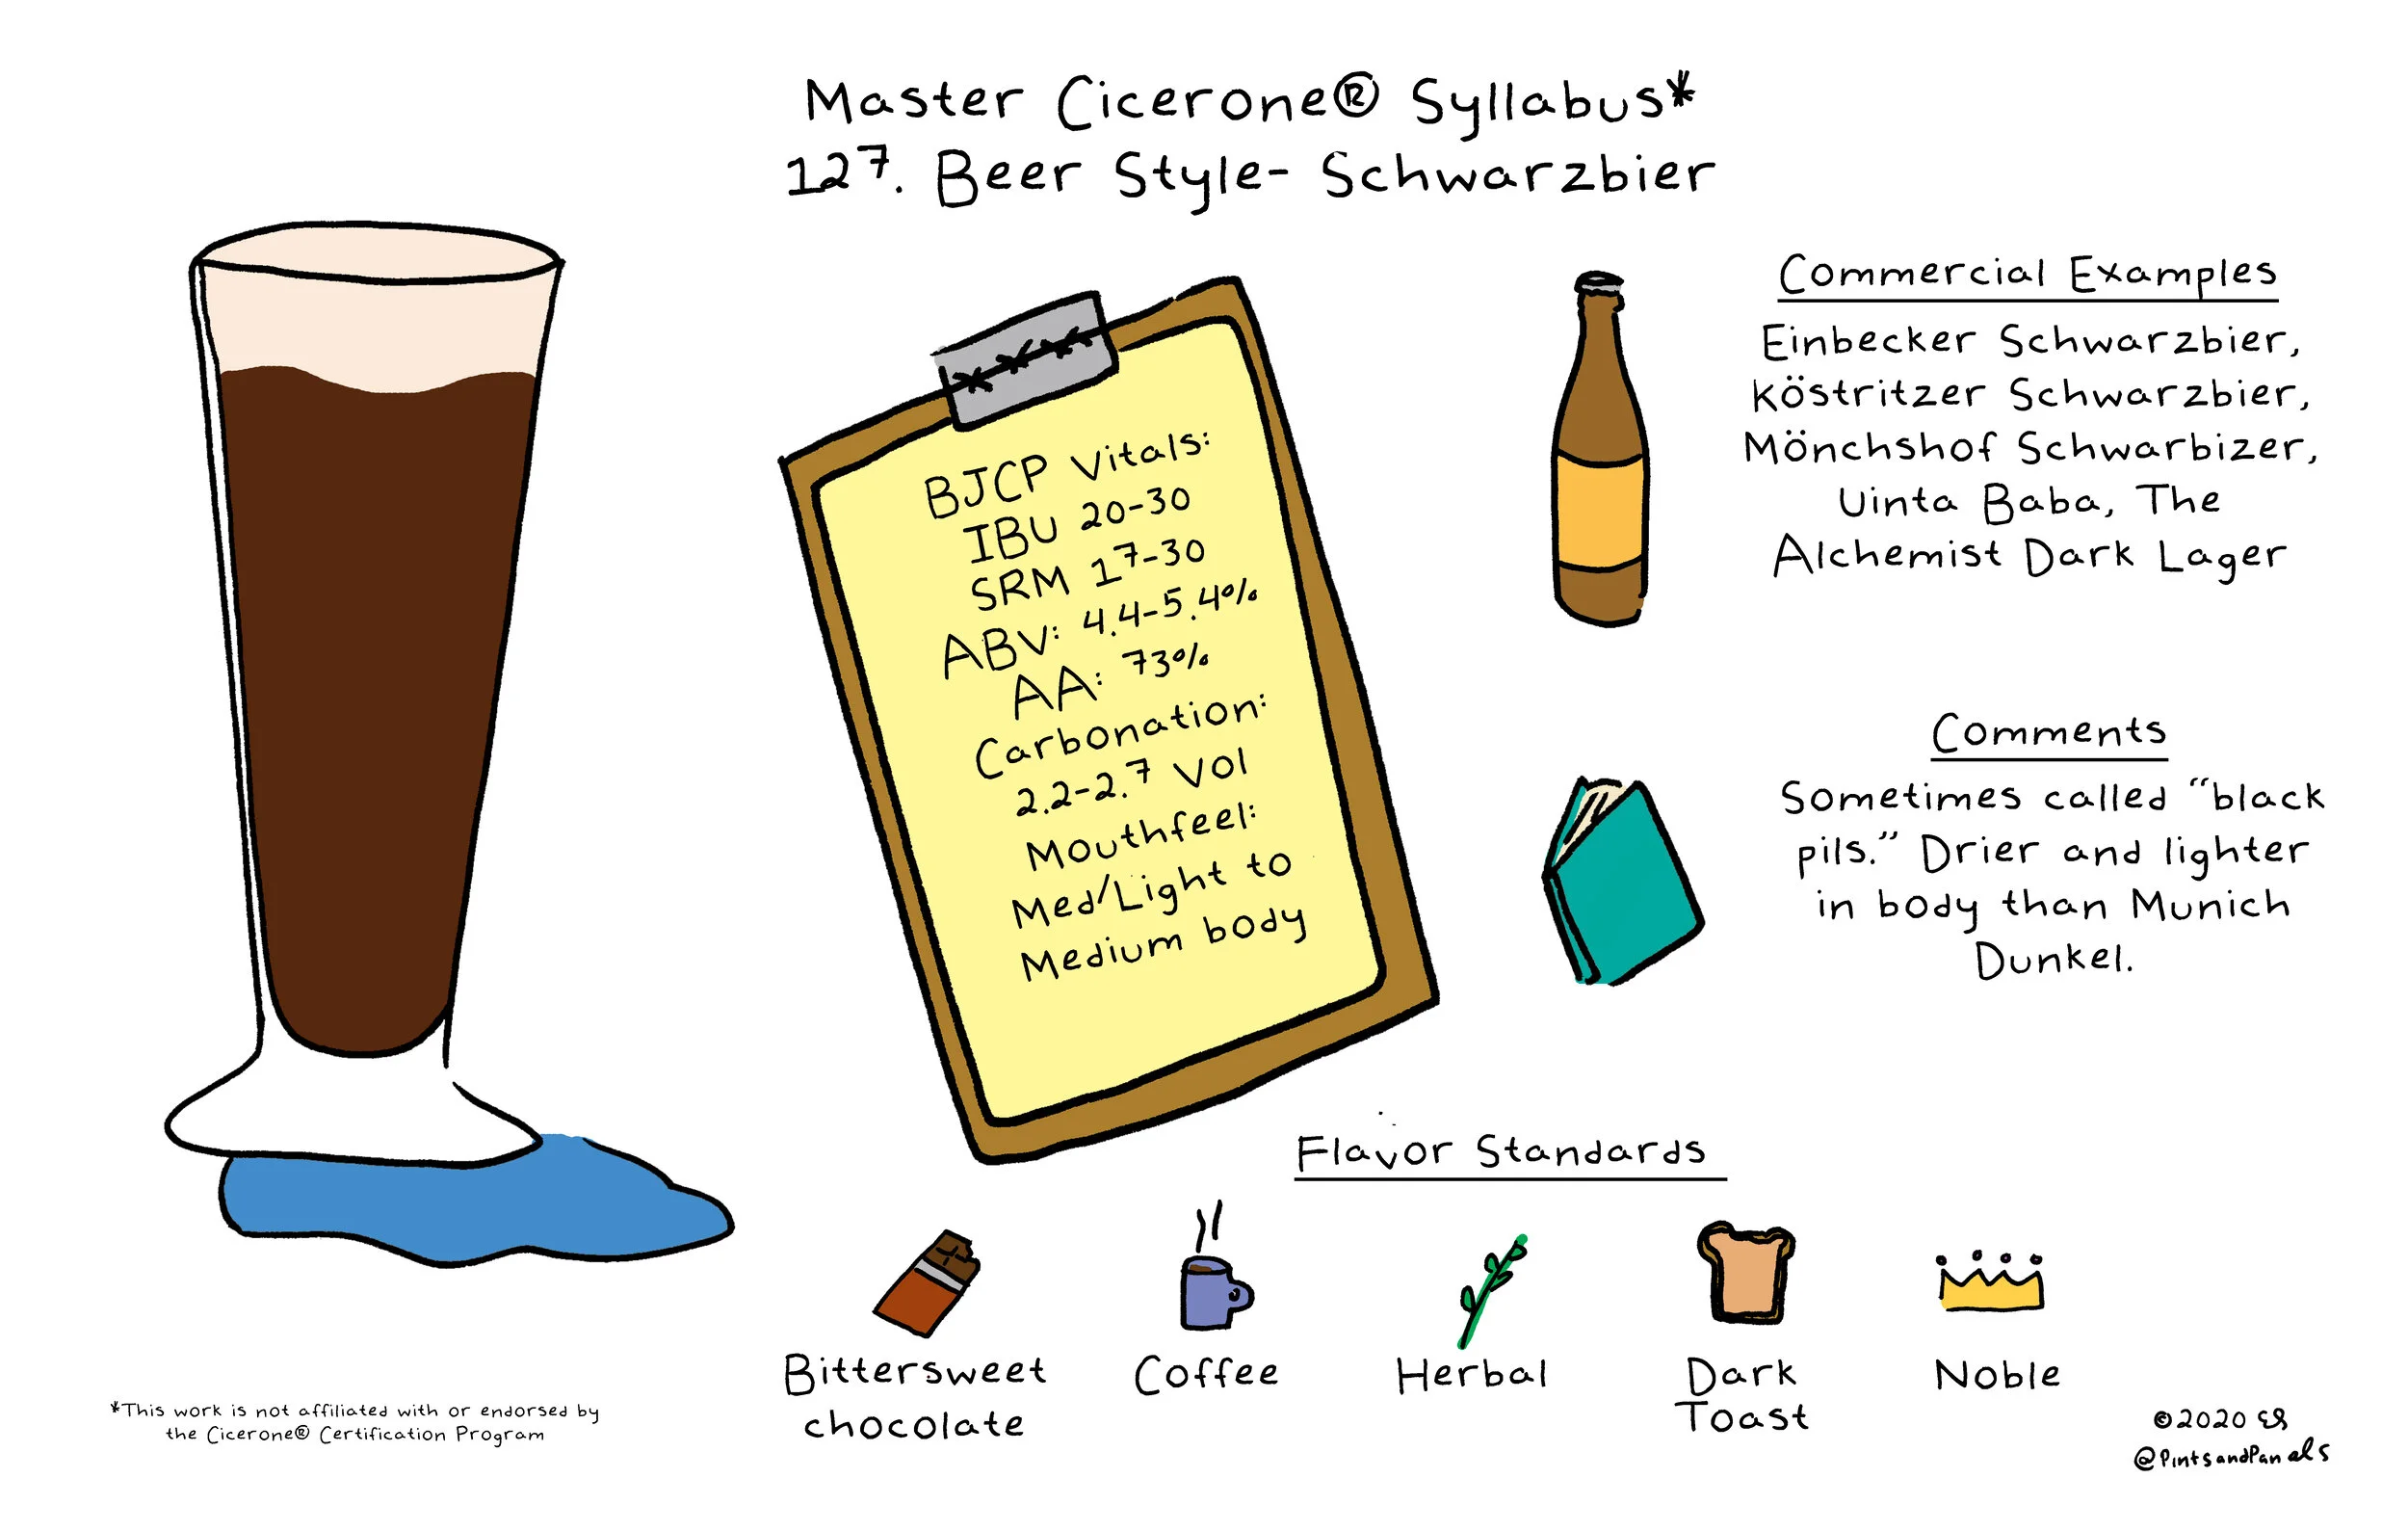 Master Cicerone® Syllabus*
127. Beer Style- Schwarzbier
BJCP Vitals:
IBU 20-30
SRM 17-30
ABV: 4.4-5.4%
AA: 73%
Carbonation:
2.2-2.7 Vol
Mouthfeel:
Med/Light to
Medium body
Commercial Examples
Einbecker Schwarzbier,
Köstritzer Schwarzbier,
Mönchshof Schwarbizer,
Uinta Baba, The
Alchemist Dark Lager
Comments
Sometimes called “black
pils.” Drier and lighter
in body than Munich
Dunkel.
Flavor Standards
Bittersweet
chocolate
Coffee
Herbal
Dark
Toast
Noble
*This work is not affiliated with or endorsed by
the Cicerone® Certification Program
©2020 ES
@PintsandPanels